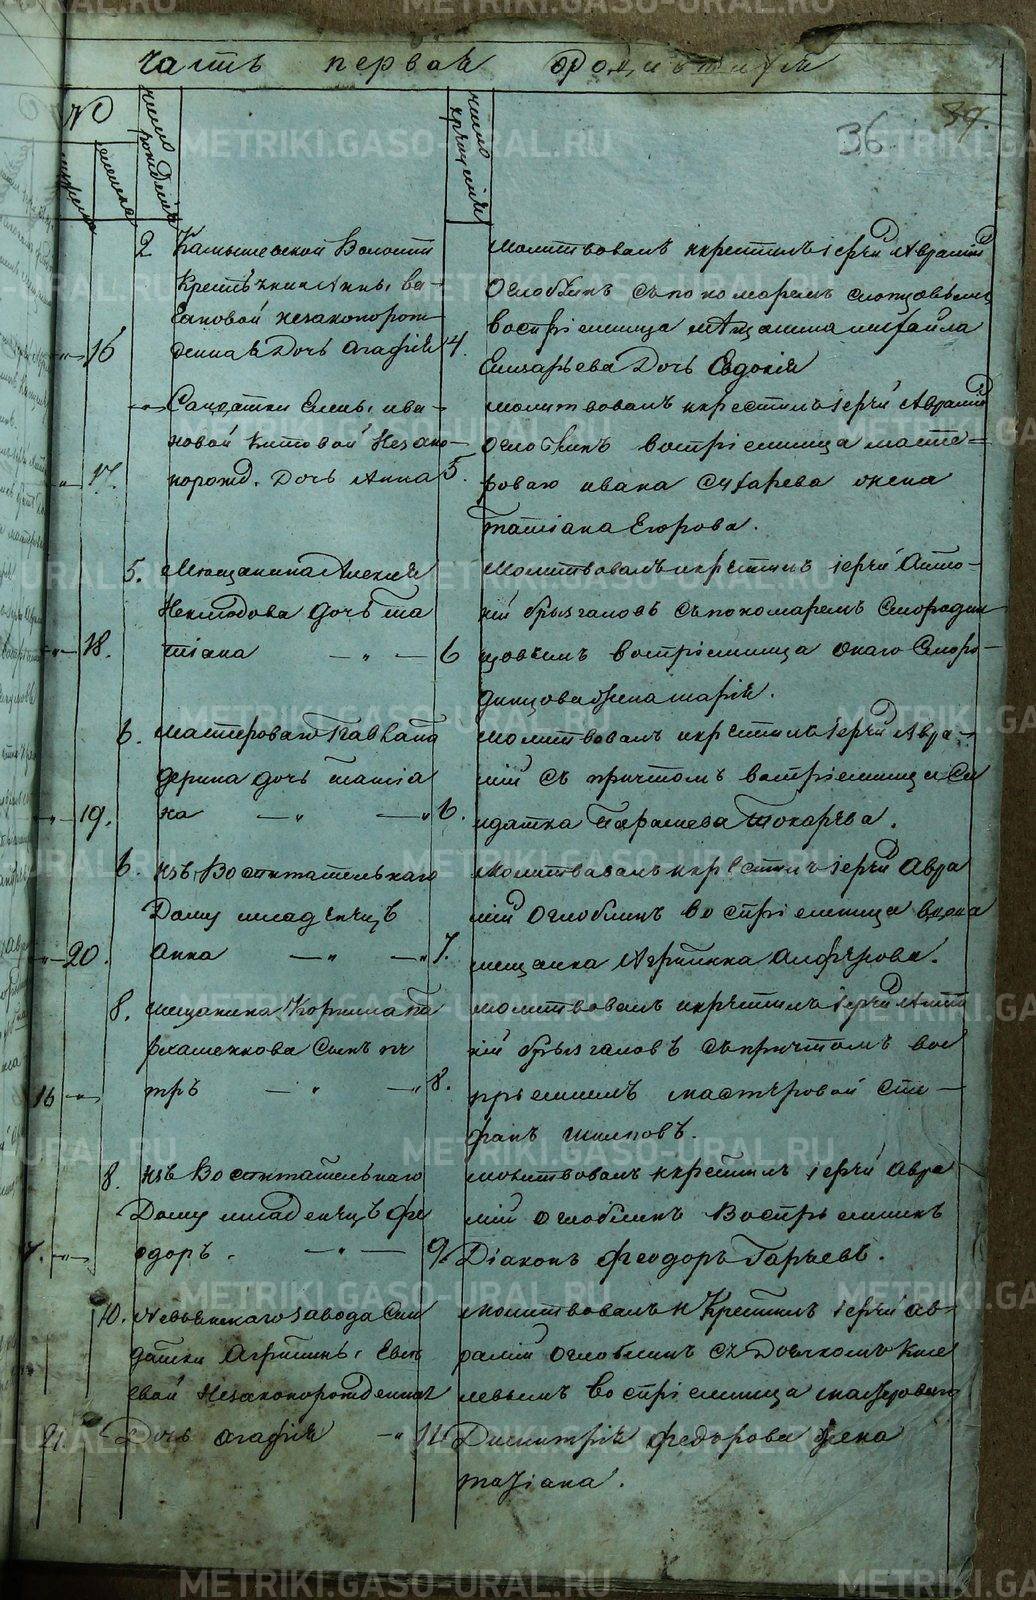 часть первая о родившихся
№
мужеска
женска
число рождения
число крещения
36
39.
2 Камышевской Волости
Крестьянки Анны, ва-
Екановой незаконорож-
16 денная Дочь Агафия 4.
Молитвовалъ и крестилъ іерей Аврамій
Оглоблинъ съ пономаремъ Слопцовымъ
воспріемница мѣщанина михайла
Елизарьева Дочь Евдокія
Салдатки Елены ива-
новой китовой Незако-
17. норожд. Дочь Анна 5.
Молитвовалъ и крестилъ іерей Аврамій
оглоблинъ воспріемница масте-
роваго ивана Сухарева жена
татіана Егорова.
5. Мещанина Алексия
Неклюдова дочь та
18. тіана — „ — 6
Молитвовалъ и крестилъ іерей Анто-
ній брызгаловъ съ пономаремъ Смородин
цовымъ воспріемница онаго Сморо-
динцова жена марія.
6. мастероваго Павла
дерина дочь татіа
19. на — „ — „ 6.
Молитвовалъ и крестилъ іерей Авра-
мій съ причтомъ воспріемница Са
лдатка Парасева Токарѣва.
6. изъ Воспитательнаго
Дому младенецъ
20. Анна — „ — „ 7.
Молитвовалъ и крестилъ іерей Авра
мій Оглоблинъ воспріемница
мещанка Агрипина Алферова.
8. мещанина Корнила Па
рхаменкова Сынъ пе
16 „ тръ — „ — „ 8.
молитвовалъ и крестилъ іерей Анто
ній брызгаловъ съ причтомъ вос
пріемникъ мастеровой Сте
фанъ шиловъ.
8. изъ Воспитательнаго
Дому младенецъ фе
7. „ одоръ. — „ — 9.
молитвовалъ и крестилъ іерей Авра
мій оглоблинъ Воспріемникъ
Діаконъ Феодоръ Гаряевъ.
10. Невьянскаго завода Сал
датки Агрипины Евсе
евой Незаконорожденная
21. Дочь Агафія — „ 11.
молитвовалъ и Крестилъ іерей ав-
рамій оглоблинъ съ Дьячкомъ Кисе
левымъ воспріемница мастероваго
Димитрія федорова жена
татіана.
METRIKI.GASO-URAL.RU